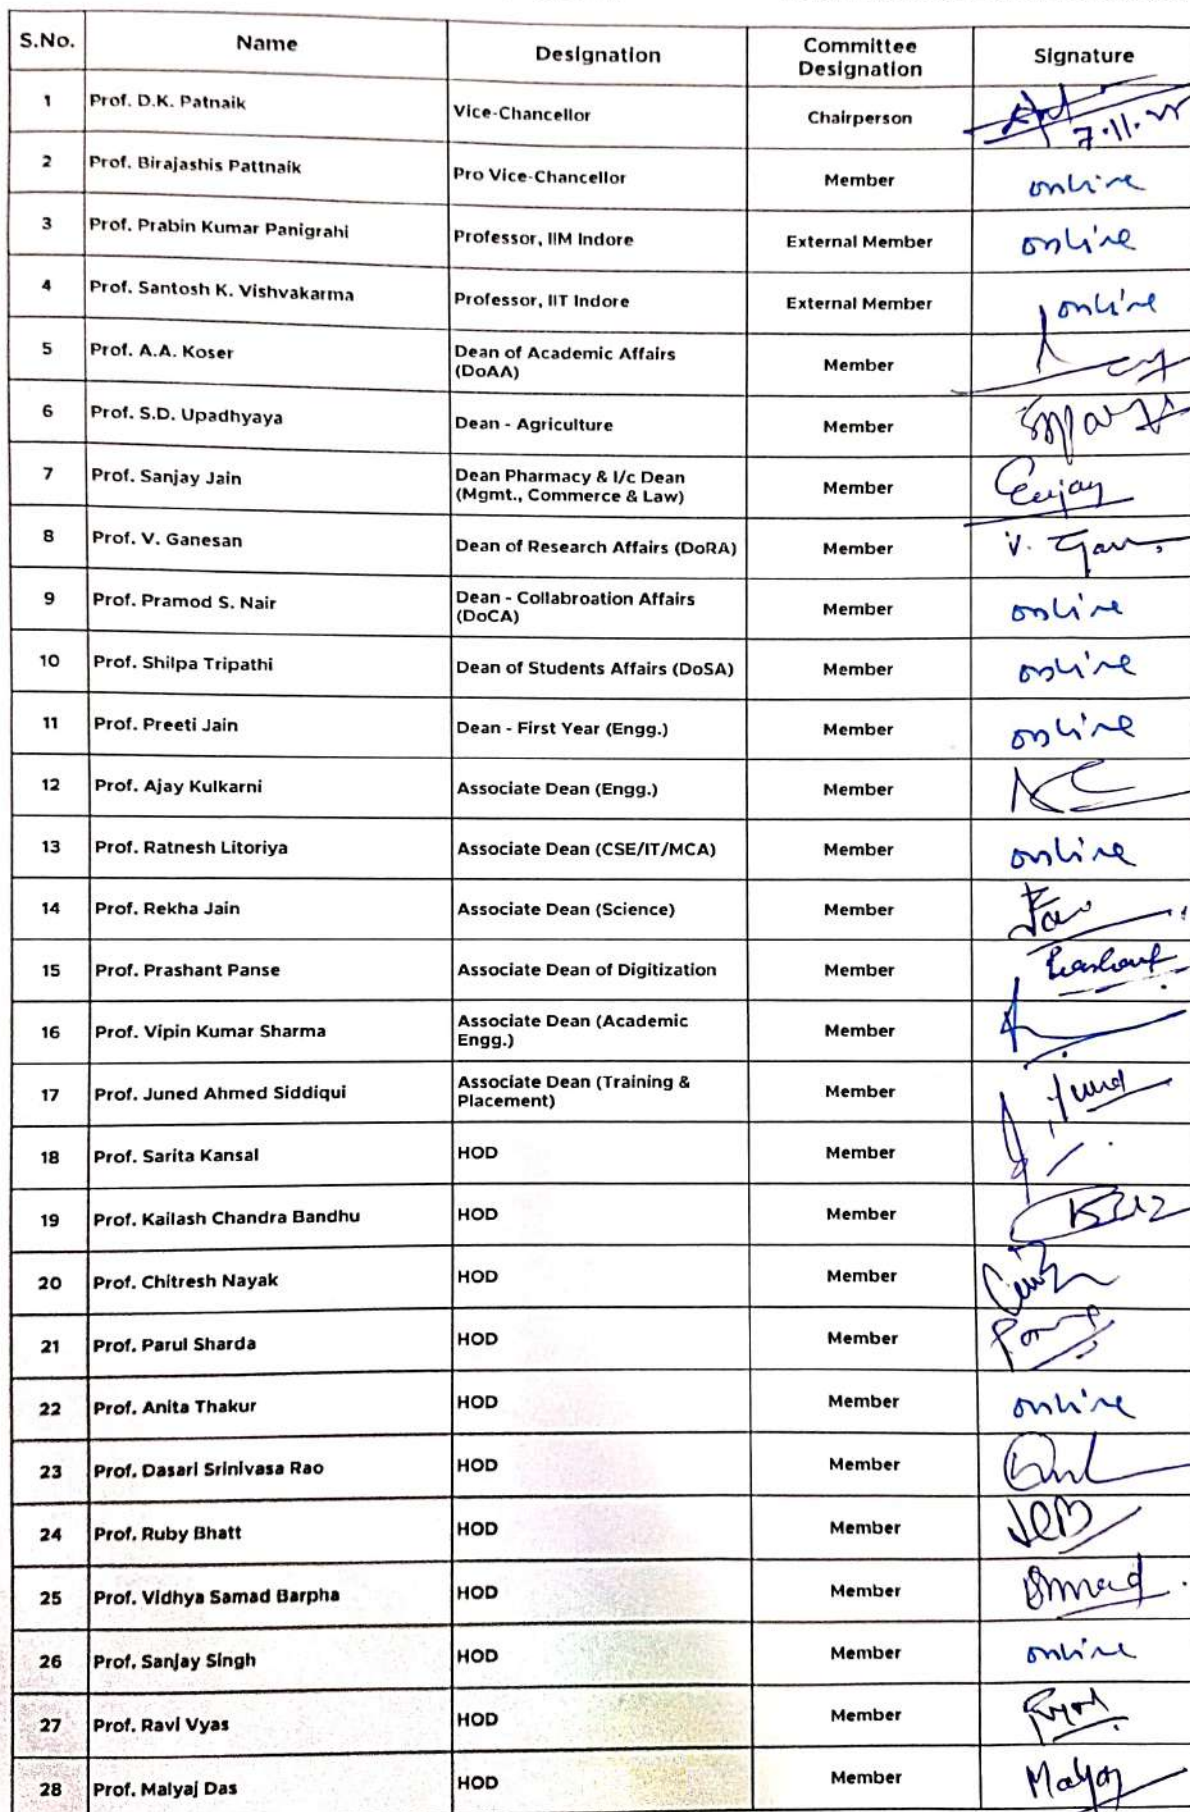 S.No. Name Designation Committee Designation Signature
1 Prof. D.K. Patnaik Vice-Chancellor Chairperson 7.11.
2 Prof. Birajashis Pattnaik Pro Vice-Chancellor Member online
3 Prof. Prabin Kumar Panigrahi Professor, IIM Indore External Member online
4 Prof. Santosh K. Vishvakarma Professor, IIT Indore External Member online
5 Prof. A.A. Koser Dean of Academic Affairs (DoAA) Member
6 Prof. S.D. Upadhyaya Dean - Agriculture Member
7 Prof. Sanjay Jain Dean Pharmacy & I/c Dean (Mgmt., Commerce & Law) Member
8 Prof. V. Ganesan Dean of Research Affairs (DoRA) Member V.
9 Prof. Pramod S. Nair Dean - Collabroation Affairs (DoCA) Member online
10 Prof. Shilpa Tripathi Dean of Students Affairs (DoSA) Member online
11 Prof. Preeti Jain Dean - First Year (Engg.) Member online
12 Prof. Ajay Kulkarni Associate Dean (Engg.) Member
13 Prof. Ratnesh Litoriya Associate Dean (CSE/IT/MCA) Member online
14 Prof. Rekha Jain Associate Dean (Science) Member
15 Prof. Prashant Panse Associate Dean of Digitization Member Prashant
16 Prof. Vipin Kumar Sharma Associate Dean (Academic Engg.) Member
17 Prof. Juned Ahmed Siddiqui Associate Dean (Training & Placement) Member
18 Prof. Sarita Kansal HOD Member
19 Prof. Kailash Chandra Bandhu HOD Member
20 Prof. Chitresh Nayak HOD Member
21 Prof. Parul Sharda HOD Member
22 Prof. Anita Thakur HOD Member online
23 Prof. Dasari Srinivasa Rao HOD Member
24 Prof. Ruby Bhatt HOD Member
25 Prof. Vidhya Samad Barpha HOD Member
26 Prof. Sanjay Singh HOD Member online
27 Prof. Ravi Vyas HOD Member
28 Prof. Malyaj Das HOD Member Malyaj